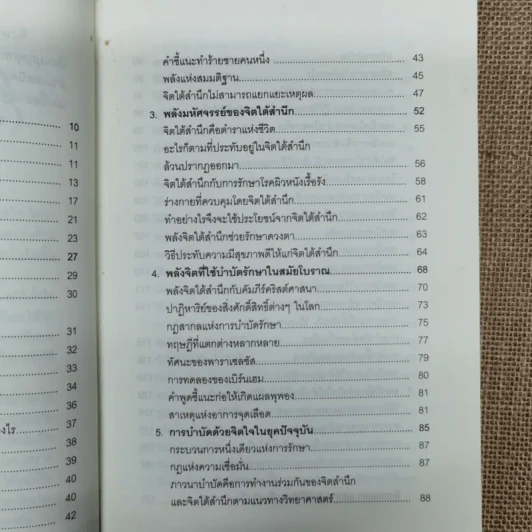 10
11
11
13
17
21
23
27
29
30
31
32
34
36
37
38
39
40
40
42
คำชี้แนะทำร้ายชายคนหนึ่ง 43
พลังแห่งสมมติฐาน 45
จิตใต้สำนึกไม่สามารถแยกแยะเหตุผล 47
3. พลังมหัศจรรย์ของจิตใต้สำนึก 52
จิตใต้สำนึกคือตำราแห่งชีวิต 55
อะไรก็ตามที่ประทับอยู่ในจิตใต้สำนึก
ล้วนปรากฏออกมา 56
จิตใต้สำนึกกับการรักษาโรคผิวหนังเรื้อรัง 58
ร่างกายที่ควบคุมโดยจิตใต้สำนึก 61
ทำอย่างไรจึงจะใช้ประโยชน์จากจิตใต้สำนึก 62
พลังจิตใต้สำนึกช่วยรักษาดวงตา 63
วิธีประทับความมีสุขภาพดีให้แก่จิตใต้สำนึก 64
4. พลังจิตที่ใช้บำบัดรักษาในสมัยโบราณ 68
พลังจิตใต้สำนึกกับคัมภีร์คริสต์ศาสนา 70
ปาฏิหาริย์ของสิ่งศักดิ์สิทธิ์ต่างๆ ในโลก 73
กฎสากลแห่งการบำบัดรักษา 75
ทฤษฎีที่แตกต่างหลากหลาย 77
ทัศนะของพาราเซลซัส 79
การทดลองของเบิร์นเฮม 80
คำพูดชี้แนะก่อให้เกิดแผลพุพอง 81
สาเหตุแห่งอาการจุดเลือด 81
5. การบำบัดด้วยจิตใจในยุคปัจจุบัน 85
กระบวนการหนึ่งเดียวแห่งการรักษา 87
กฎแห่งความเชื่อมั่น 87
ภาวนาบำบัดคือการทำงานร่วมกันของจิตสำนึก
และจิตใต้สำนึกตามแนวทางวิทยาศาสตร์ 88